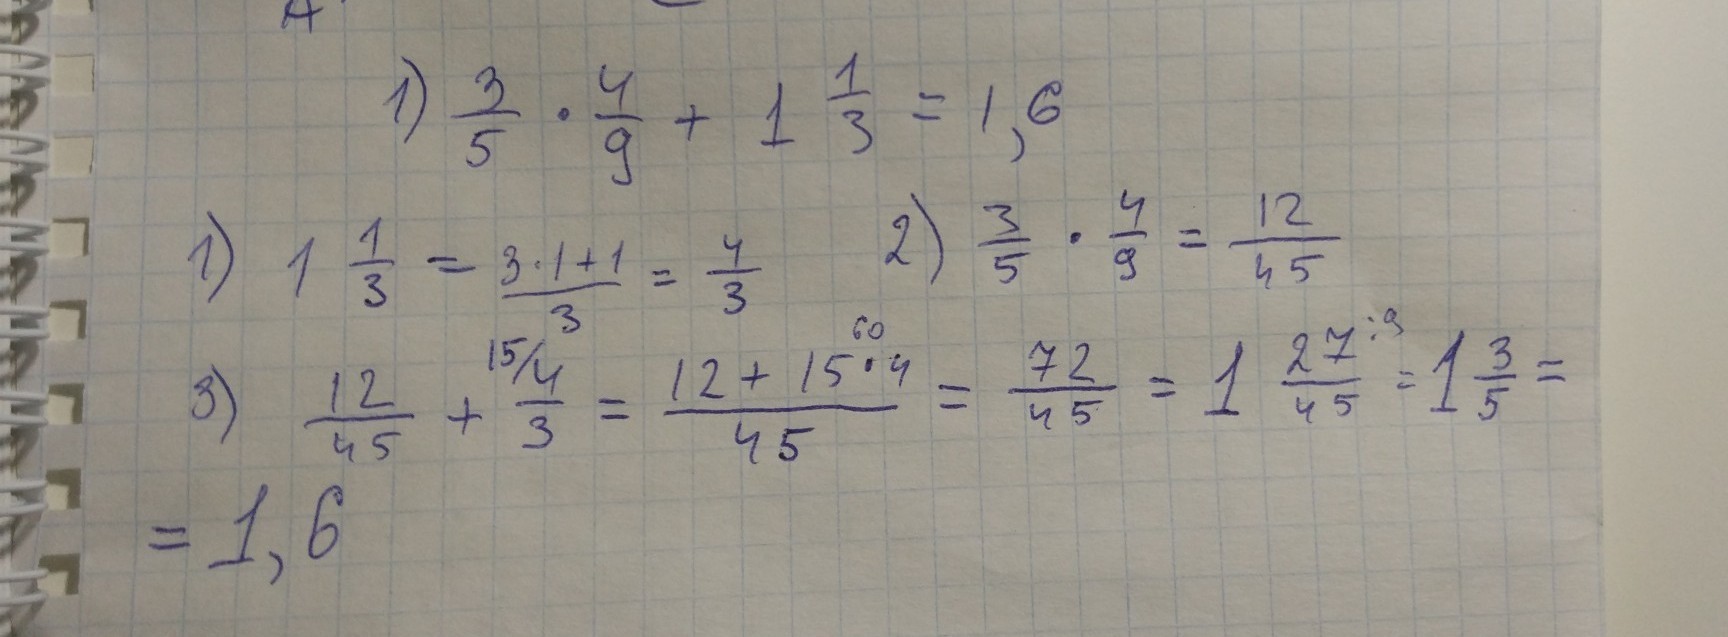 1) 3/5 · 4/9 + 1 1/3 = 1,6
1) 1 1/3 = (3·1+1)/3 = 4/3 2) 3/5 · 4/9 = 12/45
3) 12/45 + 15/ 4/3 = (12 + 15·4)/45 60 = 72/45 = 1 27/45 :9 = 1 3/5 =
= 1,6